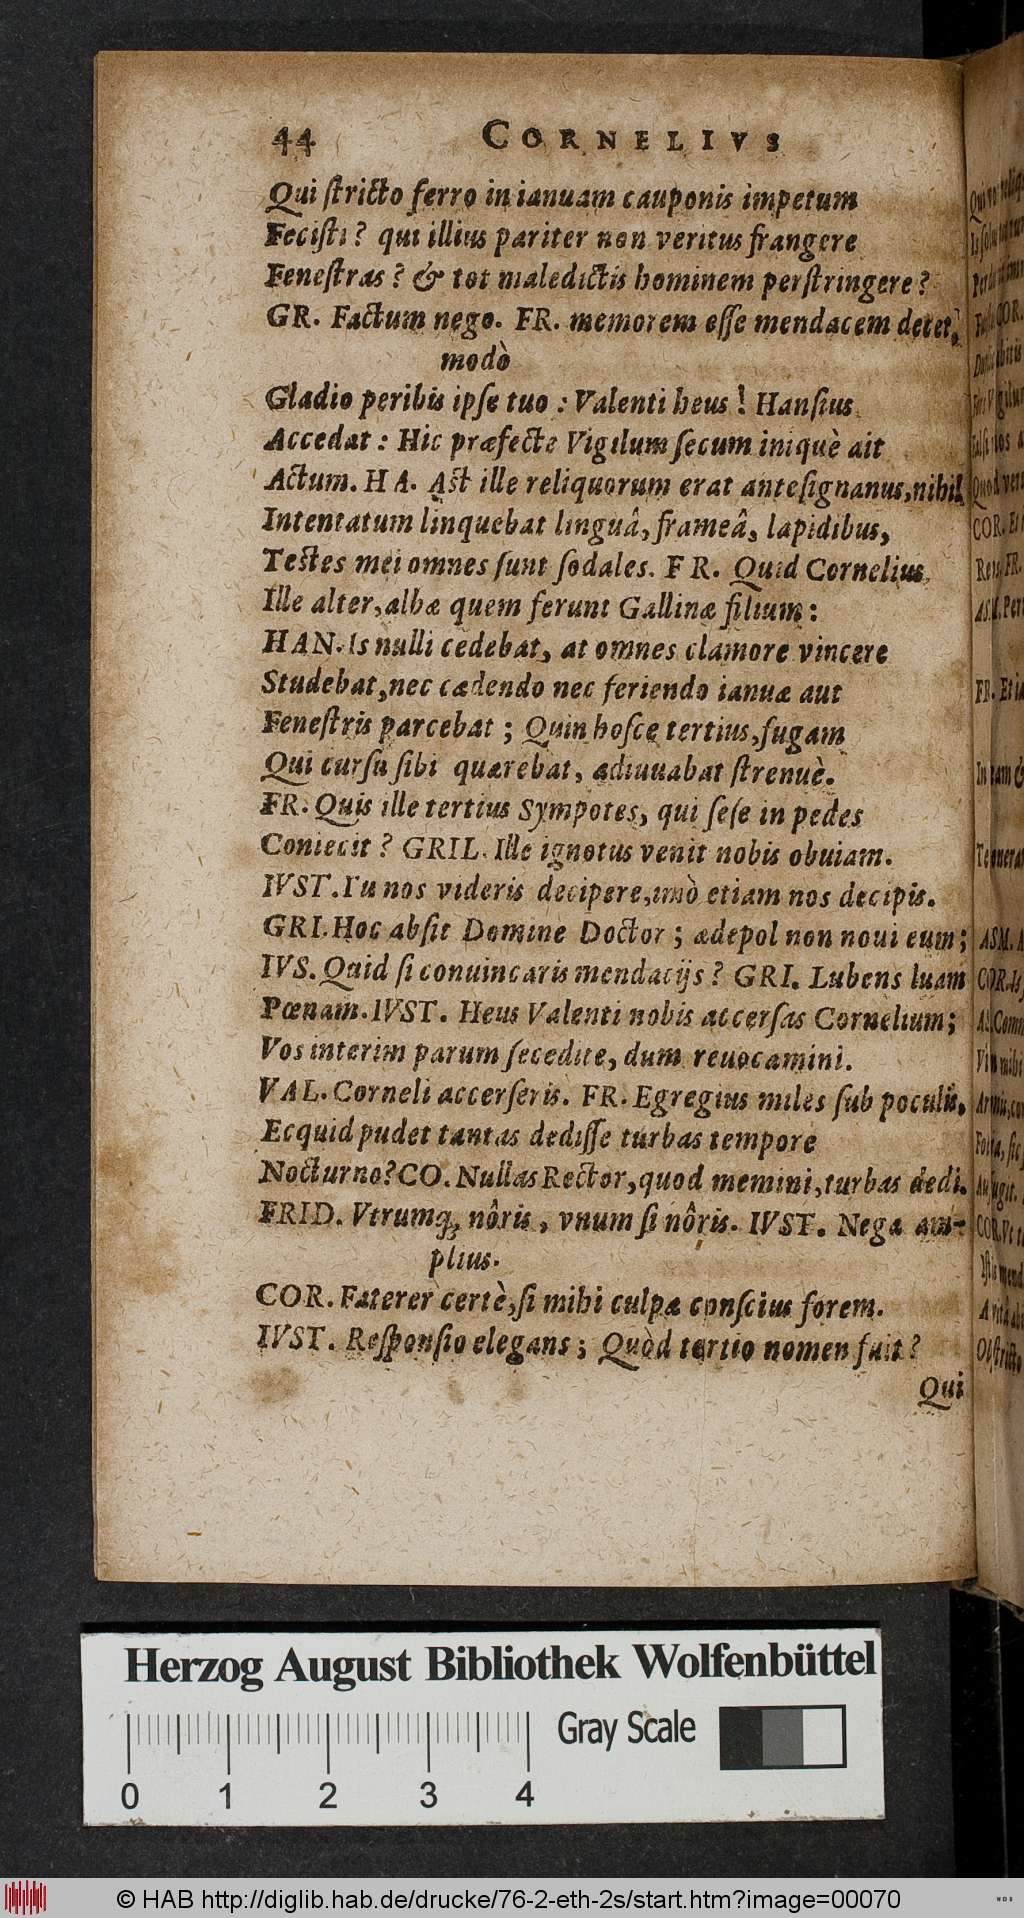 44 CORNELIVS
Qui ſtricto ferro in ianuam cauponis impetum
Feciſti? qui illius pariter non veritus frangere
Feneſtras? & tot maledictis hominem perſtringere?
GR. Factum nego. FR. memorem eſſe mendacem decet,
modò
Gladio peribis ipſe tuo: Valenti heus! Hanſius
Accedat: Hic præfecte Vigilum ſecum iniquè ait
Actum. HA. Aſt ille reliquorum erat anteſignanus, nihil
Intentatum linquebat linguâ, frameâ, lapidibus,
Teſtes mei omnes ſunt ſodales. FR. Quid Cornelius
Ille alter, albæ quem ferunt Gallinæ filium:
HAN. Is nulli cedebat, at omnes clamore vincere
Studebat, nec cædendo nec feriendo ianuæ aut
Feneſtris parcebat; Quin hoſce tertius, fugam
Qui curſu ſibi quærebat, adiuuabat ſtrenuè.
FR. Quis ille tertius Sympotes, qui ſeſe in pedes
Coniecit? GRIL. Ille ignotus venit nobis obuiam.
IVST. Tu nos videris decipere, imò etiam nos decipis.
GRI. Hoc abſit Domine Doctor; ædepol non noui eum;
IVS. Quid ſi conuincaris mendacijs? GRI. Lubens luam
Pœnam. IVST. Heus Valenti nobis accerſas Cornelium;
Vos interim parum ſecedite, dum reuocamini.
VAL. Corneli accerſeris. FR. Egregius miles ſub poculis,
Ecquid pudet tantas dediſſe turbas tempore
Nocturno? CO. Nullas Rector, quod memini, turbas dedi.
FRID. Vtrumq; nôris, vnum ſi nôris. IVST. Nega am-
plius.
COR. Faterer certè, ſi mihi culpæ conſcius forem.
IVST. Reſponſio elegans; Quòd tertio nomen fuit?
Qui
Herzog August Bibliothek Wolfenbüttel
Gray Scale
0 1 2 3 4
© HAB http://diglib.hab.de/drucke/76-2-eth-2s/start.htm?image=00070